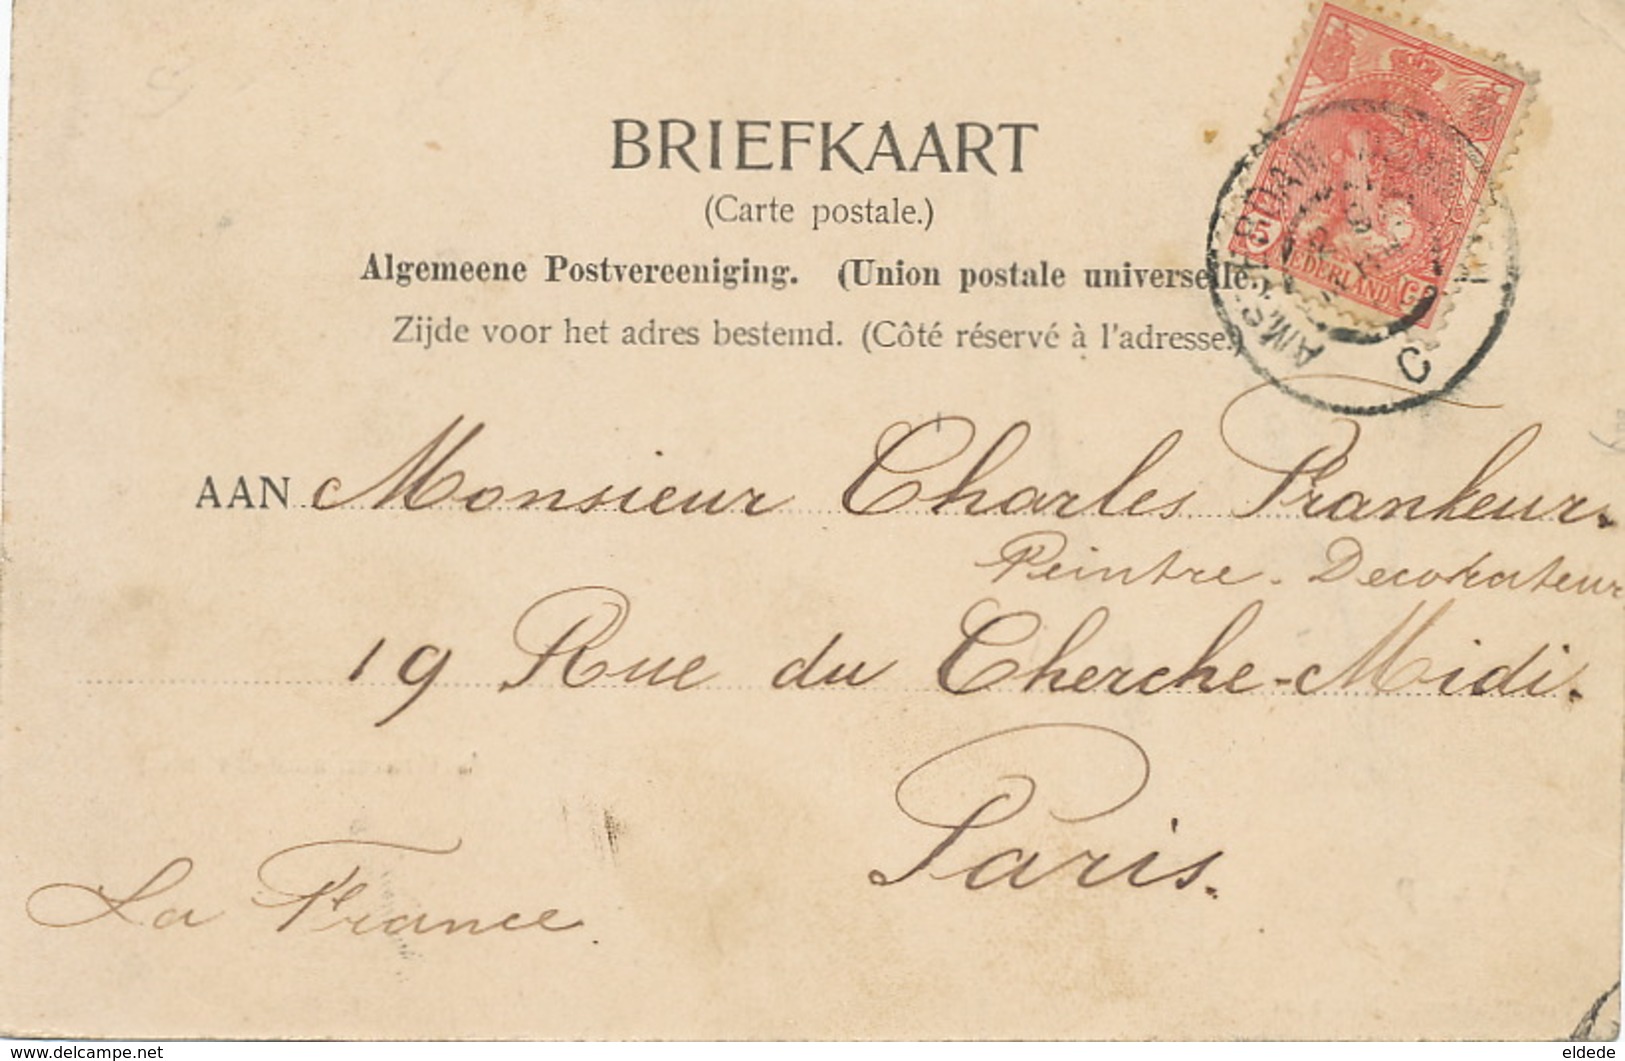 BRIEFKAART
(Carte postale.)
Algemeene Postvereeniging. (Union postale universelle.)
Zijde voor het adres bestemd. (Côté réservé à l'adresse.)
5 NEDERLAND
AMSTERDAM
C
AAN Monsieur Charles Frankeur.
Peintre. Decorateur
19 Rue du Cherche-Midi.
Paris.
La France.
https://www.delcampe.net
eldede